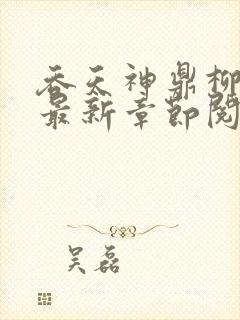 吞天神鼎柳
最新章节阅
吴磊